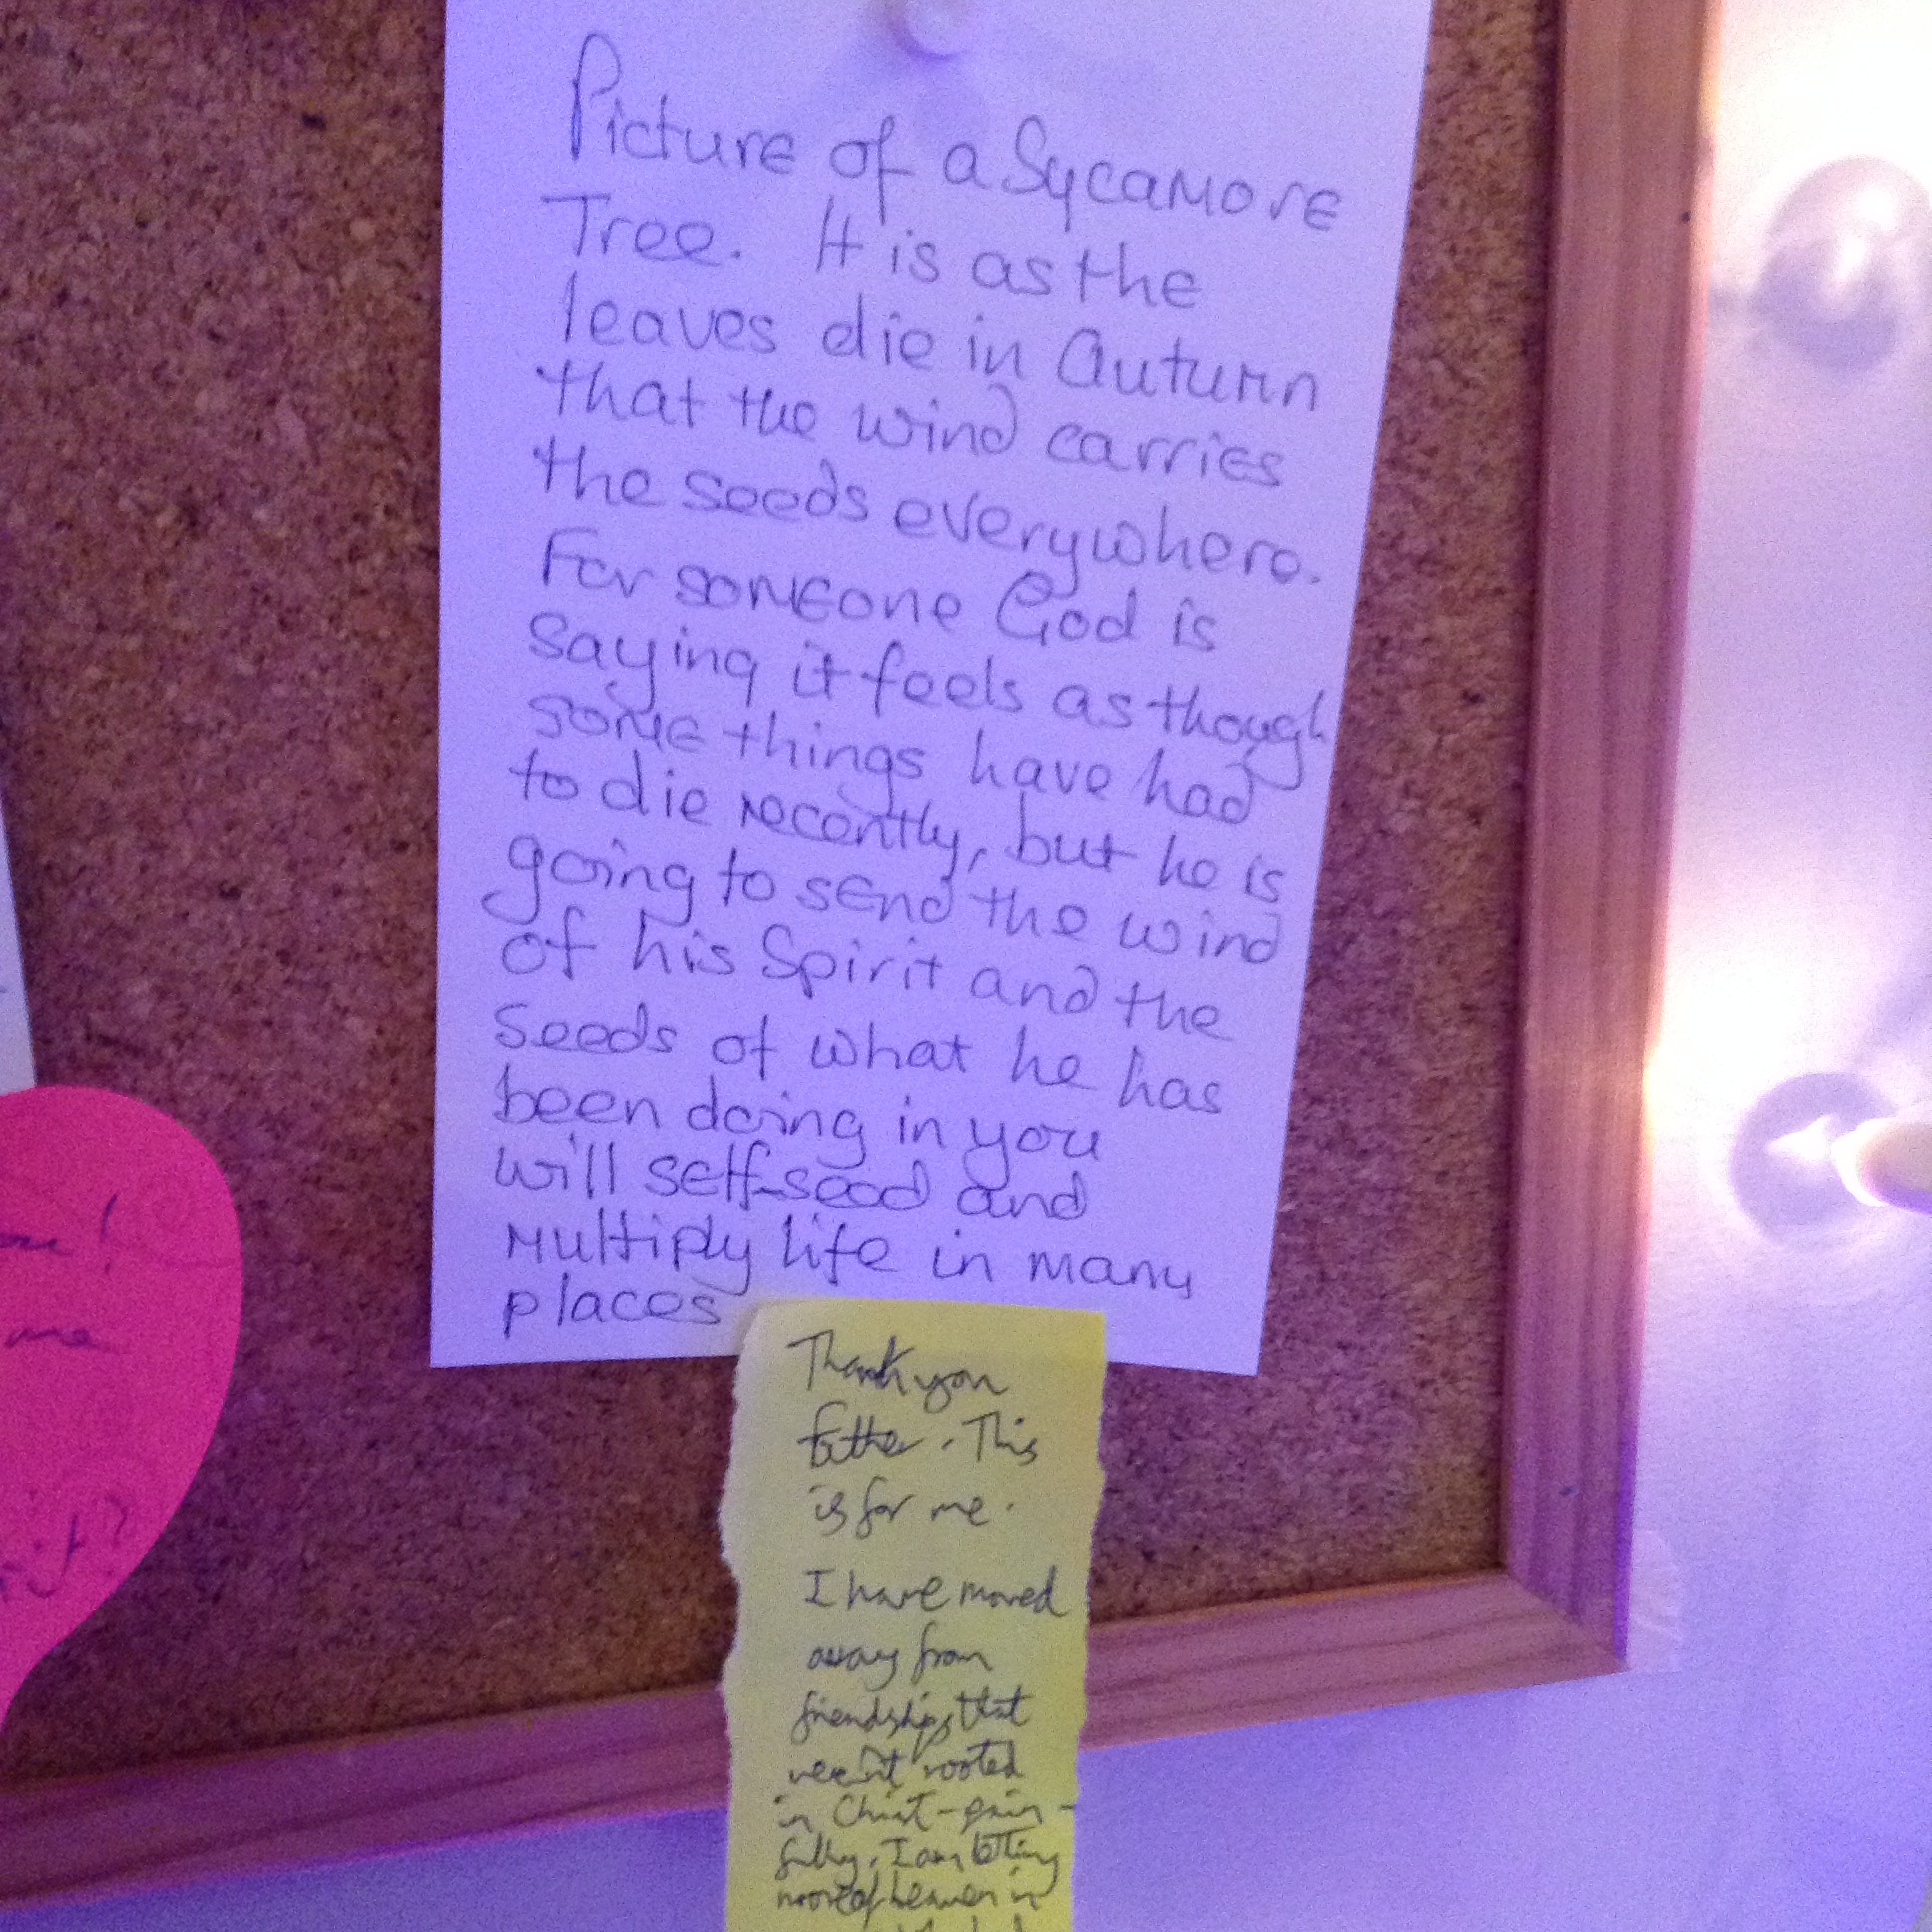 Picture of a Sycamore
Tree. It is as the
leaves die in Autumn
that the wind carries
the seeds everywhere.
For someone God is
saying it feels as though
some things have had
to die recently, but he is
going to send the wind
of his Spirit and the
seeds of what he has
been doing in you
will self-seed and
multiply life in many
places
Thank you
Father. This
is for me.
I have moved
away from
friendships that
weren't rooted
in Christ - pain-
fully. I am letting
more of heaven in
me